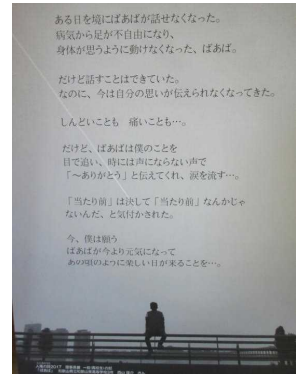 ある日を境にばあばが話せなくなった。
病気から足が不自由になり、
身体が思うように動けなくなった、ばあば。
だけど話すことはできていた。
なのに、今は自分の思いが伝えられなくなってきた。
しんどいことも 痛いことも…。
だけど、ばあばは僕のことを
目で追い、時には声にならない声で
「～ありがとう」と伝えてくれ、涙を流す…。
「当たり前」は決して「当たり前」なんかじゃ
ないんだ、と気付かされた。
今、僕は願う
ばあばが今より元気になって
あの頃のように楽しい日が来ることを…。